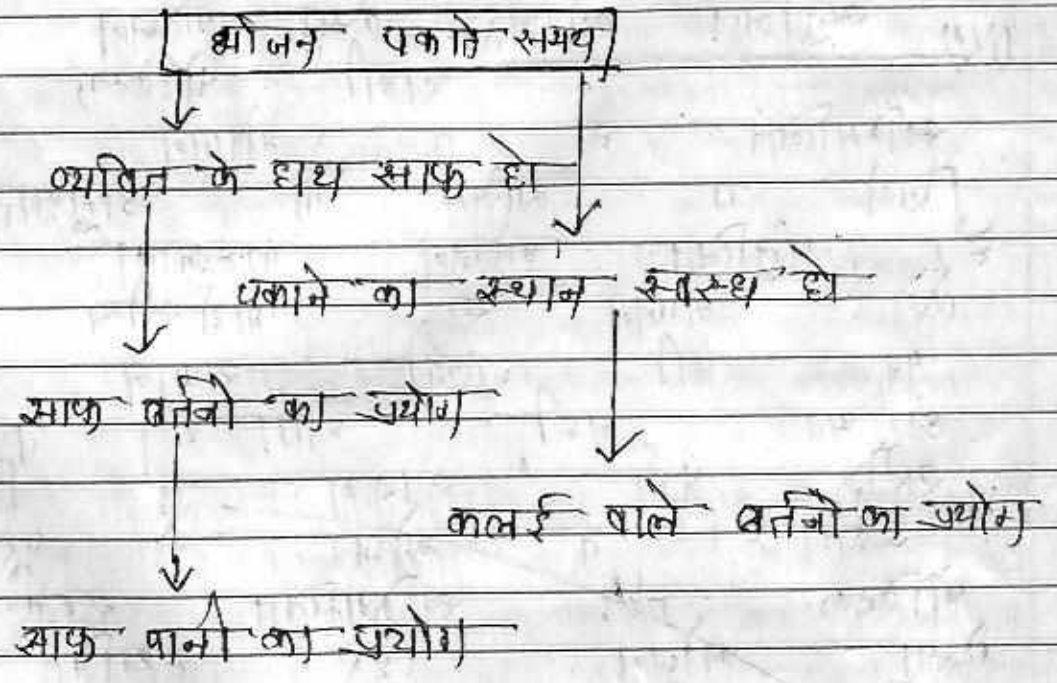 भोजन पकाते समय
व्यक्ति के हाथ साफ हो
पकाने का स्थान स्वस्थ हो
साफ बर्तनो का प्रयोग
कलई वाले बर्तनो का प्रयोग
साफ पानी का प्रयोग